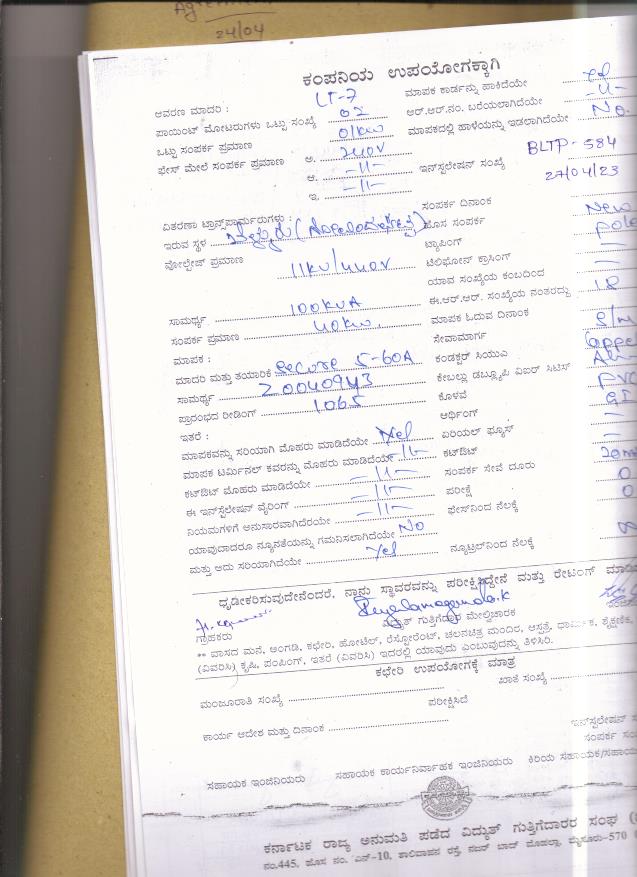 24/04
ಕಂಪನಿಯ ಉಪಯೋಗಕ್ಕಾಗಿ
ಆವರಣ ಮಾದರಿ : LT-7 ಮಾಪಕ ಕಾರ್ಡನ್ನು ಹಾಕಿದೆಯೇ Yes
ಪಾಯಿಂಟ್ ಮೋಟರುಗಳು ಒಟ್ಟು ಸಂಖ್ಯೆ 02 ಆರ್.ಆರ್.ನಂ. ಬರೆಯಲಾಗಿದೆಯೇ -11-
ಒಟ್ಟು ಸಂಪರ್ಕ ಪ್ರಮಾಣ 01kw ಮಾಪಕದಲ್ಲಿ ಹಾಳೆಯನ್ನು ಇಡಲಾಗಿದೆಯೇ No.
ಫೇಸ್ ಮೇಲೆ ಸಂಪರ್ಕ ಪ್ರಮಾಣ ಅ. 240V
ಆ. -11- ಇನ್‌ಸ್ಟಲೇಷನ್ ಸಂಖ್ಯೆ BLTP-584
ಇ. -11- 27/04/23
ಸಂಪರ್ಕ ದಿನಾಂಕ
ವಿತರಣಾ ಟ್ರಾನ್ಸ್‌ಫಾರ್ಮರುಗಳು :
ಇರುವ ಸ್ಥಳ ಹೊಸ ಸಂಪರ್ಕ New
ವೋಲ್ಟೇಜ್ ಪ್ರಮಾಣ 11kv/440V ಟ್ಯಾಪಿಂಗ್ pole
ಟೆಲಿಫೋನ್ ಕ್ರಾಸಿಂಗ್ —
ಯಾವ ಸಂಖ್ಯೆಯ ಕಂಬದಿಂದ —
ಸಾಮರ್ಥ್ಯ 100kVA ಈ.ಆರ್.ಆರ್. ಸಂಖ್ಯೆಯ ನಂತರದ್ದು
ಸಂಪರ್ಕ ಪ್ರಮಾಣ 40kw. ಮಾಪಕ ಓದುವ ದಿನಾಂಕ 18
ಮಾಪಕ : ಸೇವಾಮಾರ್ಗ S/m
ಮಾದರಿ ಮತ್ತು ತಯಾರಿಕೆ Secure 5-60A ಕಂಡಕ್ಟರ್ ಸಿಯುಎ
ಸಾಮರ್ಥ್ಯ 20040943 ಕೇಬಲ್ಲು ಡಬ್ಲ್ಯೂಪಿ ವಿಐರ್ ಸಿಟಿಸ್
ಪ್ರಾರಂಭದ ರೀಡಿಂಗ್ 1065 ಕೊಳವೆ PVC
ಇತರೆ : ಆರ್ಥಿಂಗ್ GI
ಮಾಪಕವನ್ನು ಸರಿಯಾಗಿ ಮೊಹರು ಮಾಡಿದೆಯೇ Yes ಏರಿಯಲ್ ಫ್ಯೂಸ್ —
ಮಾಪಕ ಟರ್ಮಿನಲ್ ಕವರನ್ನು ಮೊಹರು ಮಾಡಿದೆಯೇ -11- ಕಟ್‌ಔಟ್ —
ಕಟ್‌ಔಟ್ ಮೊಹರು ಮಾಡಿದೆಯೇ -11- ಸಂಪರ್ಕ ಸೇವೆ ದೂರು
ಈ ಇನ್‌ಸ್ಟಲೇಷನ್ ವೈರಿಂಗ್ -11- ಪರೀಕ್ಷೆ 0
ನಿಯಮಗಳಿಗೆ ಅನುಸಾರವಾಗಿದೆರಯೇ -11- ಫೇಸ್‌ನಿಂದ ನೆಲಕ್ಕೆ 0
ಯಾವುದಾದರೂ ನ್ಯೂನತೆಯನ್ನು ಗಮನಿಸಲಾಗಿದೆಯೇ No
ಮತ್ತು ಅದು ಸರಿಯಾಗಿದೆಯೇ Yes ನ್ಯೂಟ್ರಲ್‌ನಿಂದ ನೆಲಕ್ಕೆ
ಧೃಡೀಕರಿಸುವುದೇನೆಂದರೆ, ನಾನು ಸ್ಥಾವರವನ್ನು ಪರೀಕ್ಷಿಸಿದ್ದೇನೆ ಮತ್ತು ರೇಟಂಗ್
ಗ್ರಾಹಕರು ವಿದ್ಯುತ್ ಗುತ್ತಿಗೆದಾರ ಮೇಲ್ವಿಚಾರಕ
** ವಾಸದ ಮನೆ, ಅಂಗಡಿ, ಕಛೇರಿ, ಹೋಟೆಲ್, ರೆಸ್ಟೋರೆಂಟ್, ಚಲನಚಿತ್ರ ಮಂದಿರ, ಆಸ್ಪತ್ರೆ, ಧಾರ್ಮಿಕ, ಶೈಕ್ಷಣಿಕ,
(ವಿವರಿಸಿ) ಕೃಷಿ, ಪಂಪಿಂಗ್, ಇತರೆ (ವಿವರಿಸಿ) ಇದರಲ್ಲಿ ಯಾವುದು ಎಂಬುವುದನ್ನು ತಿಳಿಸಿರಿ.
ಕಛೇರಿ ಉಪಯೋಗಕ್ಕೆ ಮಾತ್ರ
ಮಂಜೂರಾತಿ ಸಂಖ್ಯೆ ಖಾತೆ ಸಂಖ್ಯೆ
ಪರೀಕ್ಷಿಸಿದೆ
ಕಾರ್ಯ ಆದೇಶ ಮತ್ತು ದಿನಾಂಕ
ಸಹಾಯಕ ಇಂಜಿನಿಯರು ಸಹಾಯಕ ಕಾರ್ಯನಿರ್ವಾಹಕ ಇಂಜಿನಿಯರು ಕಿರಿಯ ಸಹಾಯಕ/
ಕರ್ನಾಟಕ ರಾಜ್ಯ ಅನುಮತಿ ಪಡೆದ ವಿದ್ಯುತ್ ಗುತ್ತಿಗೆದಾರರ ಸಂಘ
ನಂ.445, ಹೊಸ ನಂ. ಎನ್-10, ಶಾಲಿವಾಹನ ರಸ್ತೆ, ನಜರ್ ಬಾದ್ ಮೊಹಲ್ಲಾ, ಮೈಸೂರು-570